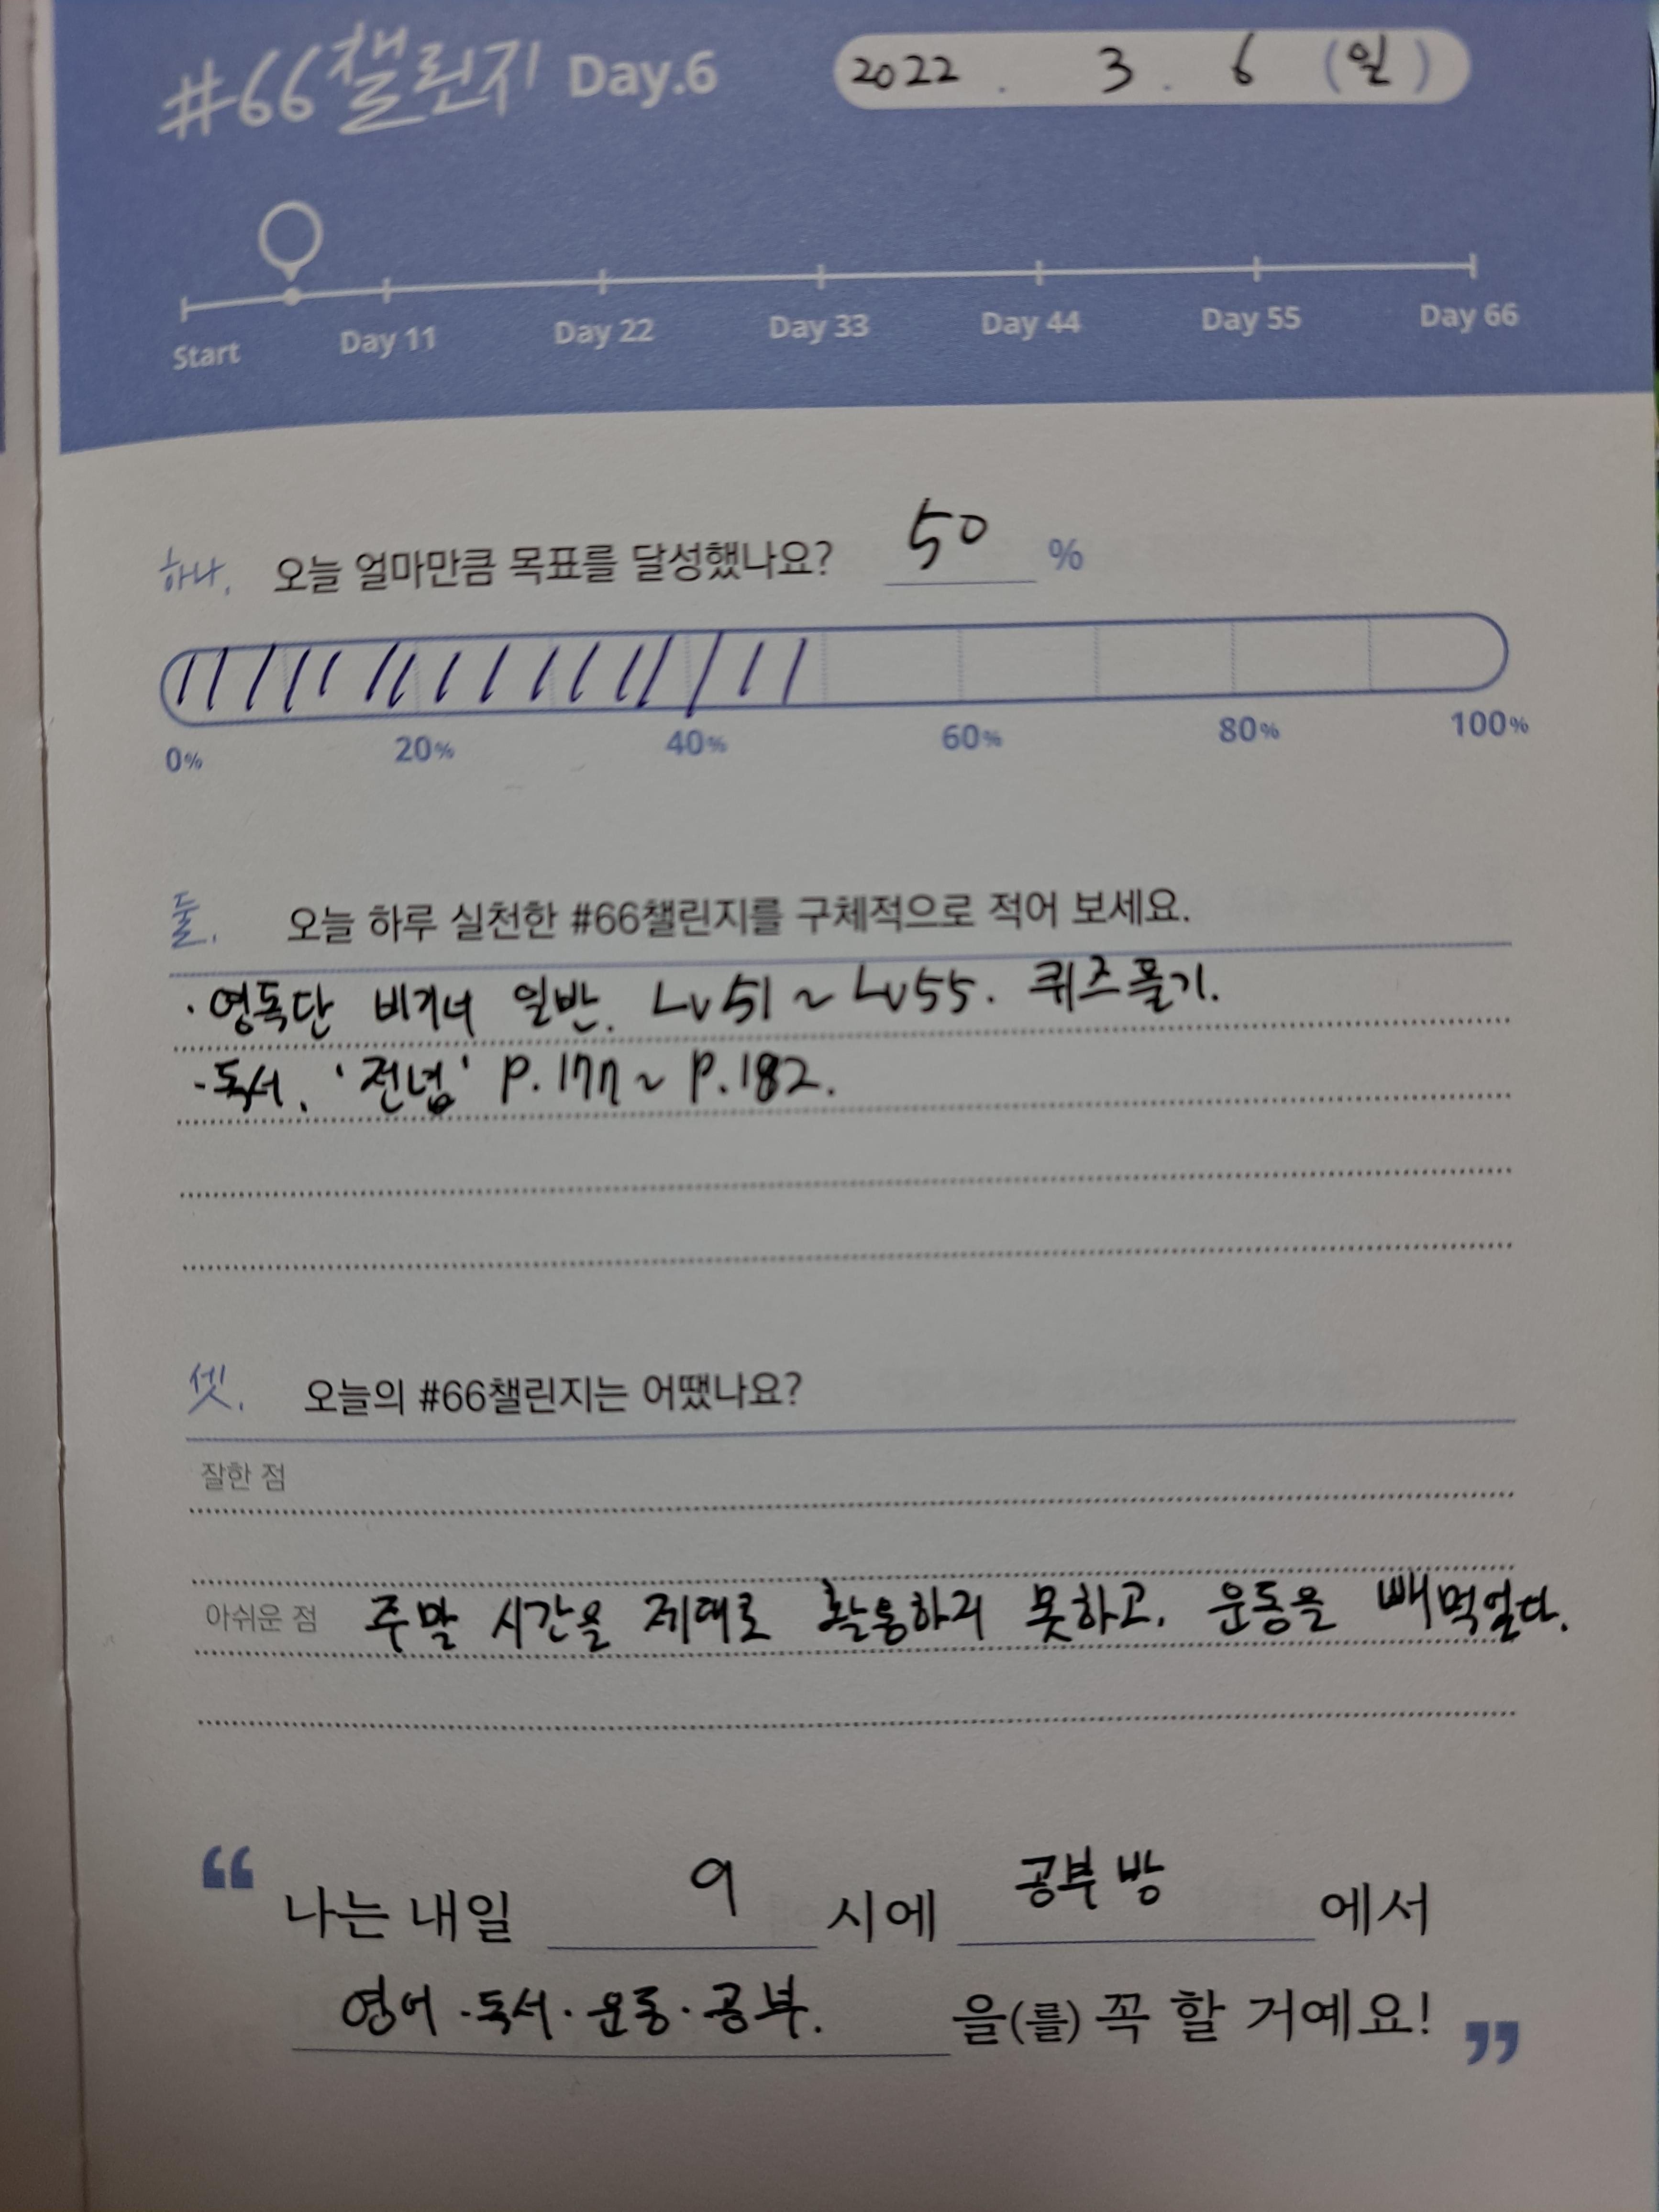 #66챌린지 Day.6 2022 . 3 . 6 (일)
Start Day 11 Day 22 Day 33 Day 44 Day 55 Day 66
하나. 오늘 얼마만큼 목표를 달성했나요? 50 %
0% 20% 40% 60% 80% 100%
둘. 오늘 하루 실천한 #66챌린지를 구체적으로 적어 보세요.
· 영독단 비기너 일반. Lv51 ~ Lv55. 퀴즈풀기.
- 독서. '전념' P.177 ~ P.182.
셋. 오늘의 #66챌린지는 어땠나요?
잘한 점
아쉬운 점 주말 시간을 제대로 활용하지 못하고, 운동을 빼먹었다.
“ 나는 내일 9 시에 공부방 에서
영어 · 독서 · 운동 · 공부. 을(를) 꼭 할 거예요! ”